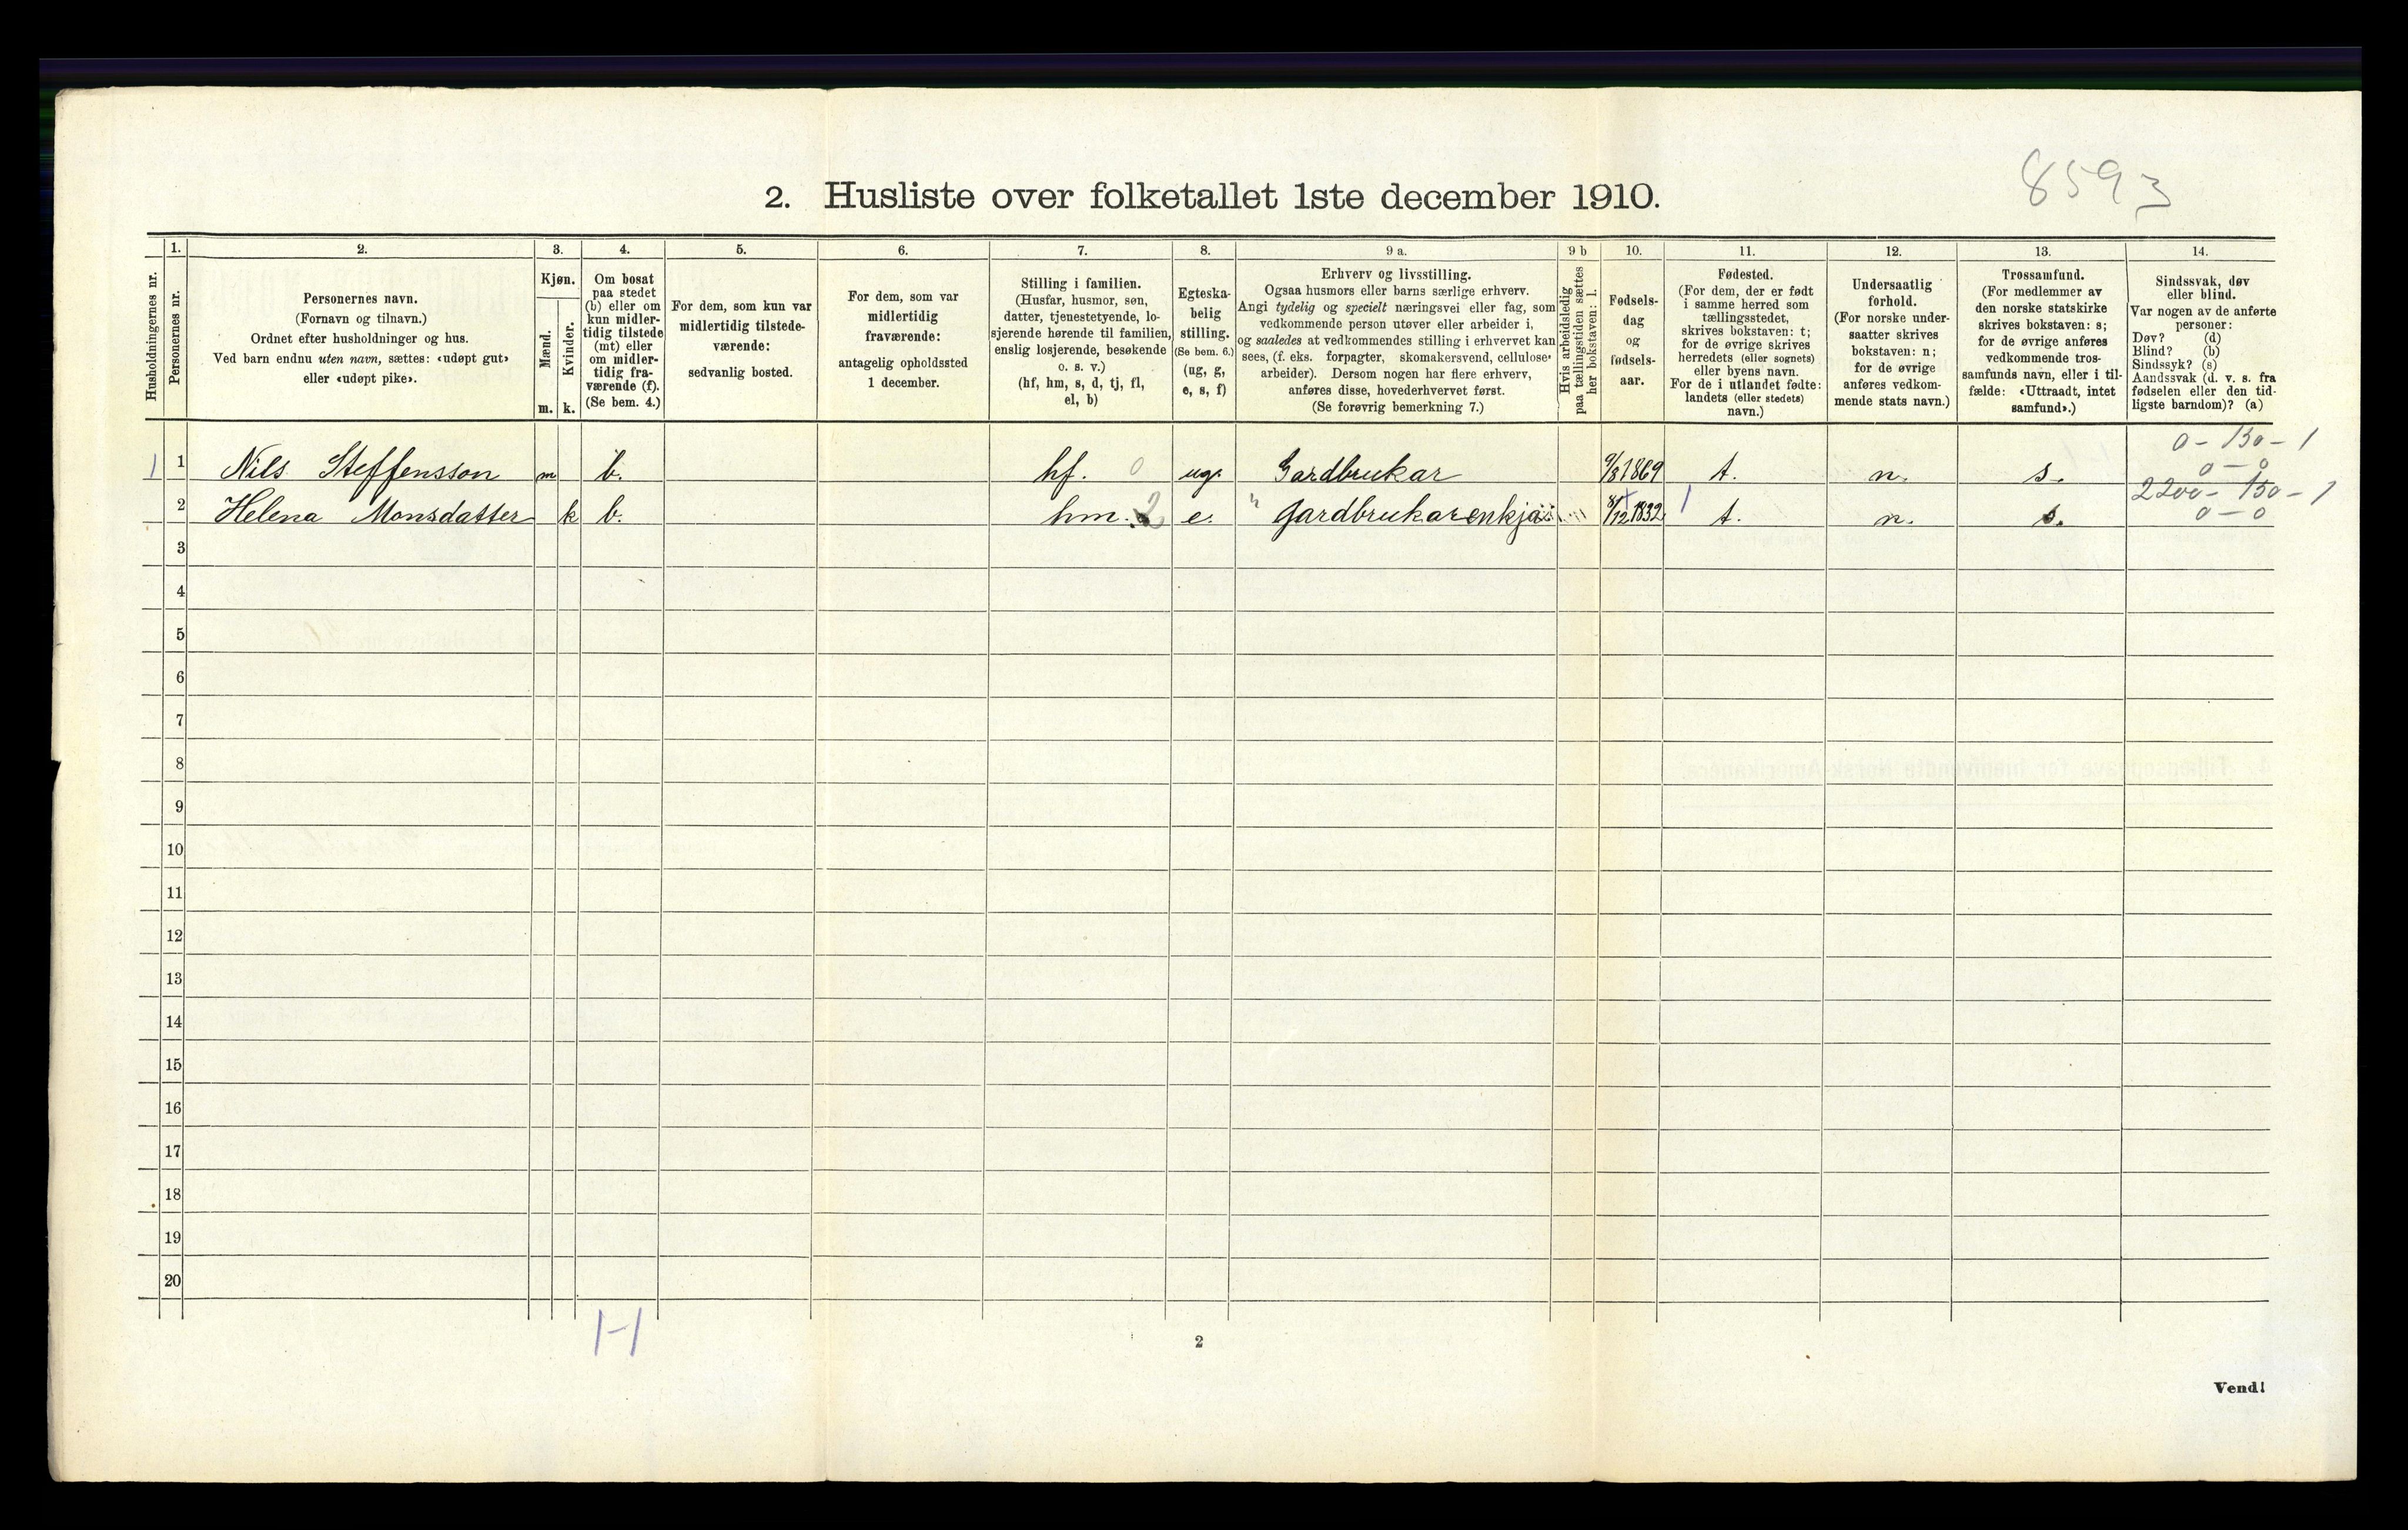 8593
2. Husliste over folketallet 1ste december 1910.
Husholdningernes nr.
1.
Personernes nr.
2.
Personernes navn.
(Fornavn og tilnavn.)
Ordnet efter husholdninger og hus.
Ved barn endnu uten navn, sættes: «udøpt gut»
eller «udøpt pike».
3.
Kjøn.
Mænd.
Kvinder.
m. k.
4.
Om bosat
paa stedet
(b) eller om
kun midler-
tidig tilstede
(mt) eller
om midler-
tidig fra-
værende (f).
(Se bem. 4.)
5.
For dem, som kun var
midlertidig tilstede-
værende:
sedvanlig bosted.
6.
For dem, som var
midlertidig
fraværende:
antagelig opholdssted
1 december.
7.
Stilling i familien.
(Husfar, husmor, søn,
datter, tjenestetyende, lo-
sjerende hørende til familien,
enslig losjerende, besøkende
o. s. v.)
(hf, hm, s, d, tj, fl,
el, b)
8.
Egteska-
belig
stilling.
(Se bem. 6.)
(ug, g,
e, s, f)
9 a.
Erhverv og livsstilling.
Ogsaa husmors eller barns særlige erhverv.
Angi tydelig og specielt næringsvei eller fag, som
vedkommende person utøver eller arbeider i,
og saaledes at vedkommendes stilling i erhvervet kan
sees, (f. eks. forpagter, skomakersvend, cellulose-
arbeider). Dersom nogen har flere erhverv,
anføres disse, hovederhvervet først.
(Se forøvrig bemerkning 7.)
9 b
Hvis arbeidsledig
paa tællingstiden sættes
her bokstaven: l.
10.
Fødsels-
dag
og
fødsels-
aar.
11.
Fødested.
(For dem, der er født
i samme herred som
tællingsstedet,
skrives bokstaven: t;
for de øvrige skrives
herredets (eller sognets)
eller byens navn.
For de i utlandet fødte:
landets (eller stedets)
navn.)
12.
Undersaatlig
forhold.
(For norske under-
saatter skrives
bokstaven: n;
for de øvrige
anføres vedkom-
mende stats navn.)
13.
Trossamfund.
(For medlemmer av
den norske statskirke
skrives bokstaven: s;
for de øvrige anføres
vedkommende tros-
samfunds navn, eller i til-
fælde: «Uttraadt, intet
samfund».)
14.
Sindssvak, døv
eller blind.
Var nogen av de anførte
personer:
Døv? (d)
Blind? (b)
Sindssyk? (s)
Aandssvak (d. v. s. fra
fødselen eller den tid-
ligste barndom)? (a)
0 - 150 - 1
1 1 Nils Steffensson m b. hf. 0 ug. Gardbrukar 9/3 1869 t. n. s. 0 - 0
2200 - 150 - 1
2 Helena Monsdatter k b. hm. 2 e. " Gardbrukarenkja 8/12 1832 1 t. n. s. 0 - 0
3
4
5
6
7
8
9
10
11
12
13
14
15
16
17
18
19
20
1-1
2
Vend!